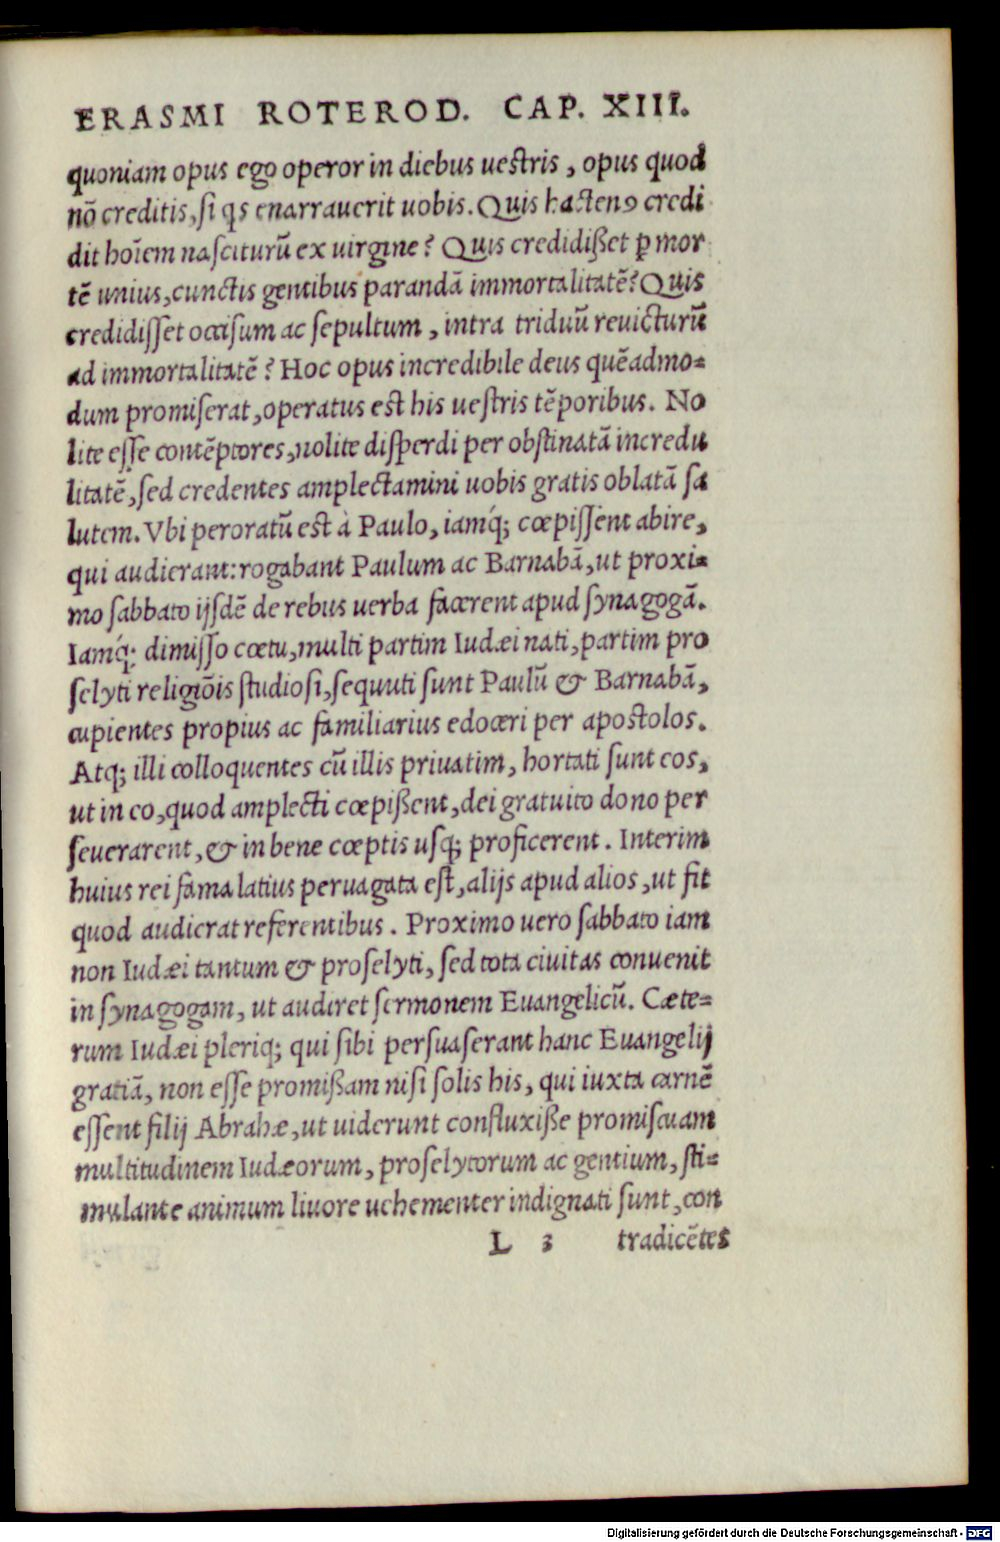 ERASMI ROTEROD. CAP. XIII.
quoniam opus ego operor in diebus uestris, opus quod
nõ creditis, ſi qs enarrauerit uobis. Quis hactenꝰ credi
dit hoĩem naſciturũ ex uirgine? Quis credidißet ꝑ mor
tẽ unius, cunctis gentibus parandã immortalitatẽ? Quis
credidiſſet occiſum ac ſepultum, intra triduũ reuicturũ
ad immortalitatẽ? Hoc opus incredibile deus quẽadmo⸗
dum promiſerat, operatus est his ueſtris tẽporibus. No
lite eſſe contẽptores, nolite diſperdi per obſtinatã incredu
litatẽ, ſed credentes amplectamini uobis gratis oblatã ſa
lutem. Vbi peroratũ est à Paulo, iamq́; cœpiſſent abire,
qui audierant: rogabant Paulum ac Barnabã, ut proxi⸗
mo ſabbato ijſdẽ de rebus uerba facerent apud ſynagogã.
Iamq́; dimiſſo cœtu, multi partim Iudæi nati, partim pro
ſelyti religiõis ſtudioſi, ſequuti ſunt Paulũ & Barnabã,
cupientes propius ac familiarius edoceri per apoſtolos.
Atq; illi colloquentes cũ illis priuatim, hortati ſunt eos,
ut in eo, quod amplecti cœpißent, dei gratuito dono per
ſeuerarent, & in bene cœptis uſq; proficerent. Interim
huius rei fama latius peruagata eſt, alijs apud alios, ut fit
quod audierat referentibus. Proximo uero ſabbato iam
non Iudæi tantum & proſelyti, ſed tota ciuitas conuenit
in ſynagogam, ut audiret ſermonem Euangelicũ. Cæte⸗
rum Iudæi pleriq; qui ſibi perſuaſerant hanc Euangelij
gratiã, non eſſe promißam niſi ſolis his, qui iuxta carnẽ
eſſent filij Abrahæ, ut uiderunt confluxiße promiſcuam
multitudinem Iudæorum, proſelytorum ac gentium, ſti⸗
mulante animum liuore uehementer indignati ſunt, con
L 3 tradicẽtes
Digitalisierung gefördert durch die Deutsche Forschungsgemeinschaft - DFG